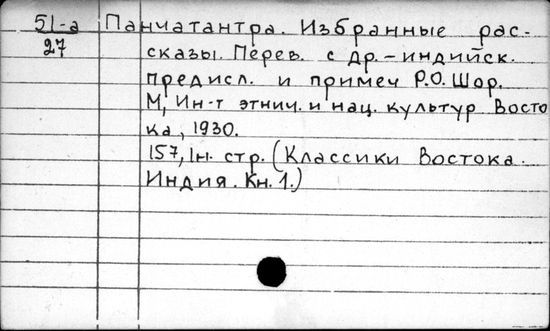 51-а Панчатантра. Избранные рас-
27 сказы. Перев. с др.-индийск.
предисл. и примеч Р.О. Шор.
М, Ин-т этнич. и нац. культур Восто
ка, 1930.
157, 1н. стр. (Классики Востока.
Индия. Кн. 1.)